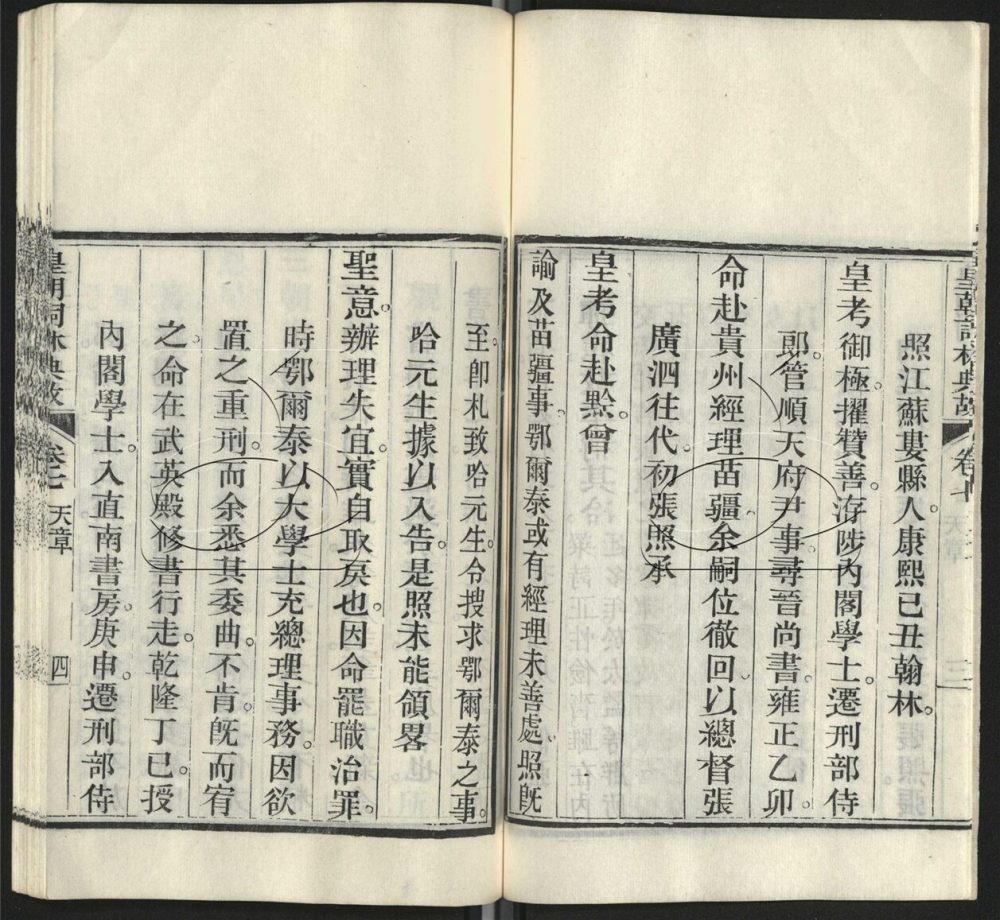 皇朝詞林典故　卷七　天章　三
照江蘇婁縣人。康熙己丑翰林。
皇考御極。擢贊善。洊陟內閣學士。遷刑部侍
郎。管順天府尹事。尋晉尚書。雍正乙卯
命赴貴州經理苗疆。余嗣位徹回。以總督張
廣泗往代。初張照承
皇考命赴黔。曾
諭及苗疆事。鄂爾泰或有經理未善處。照既
至。卽札致哈元生。令搜求鄂爾泰之事。
哈元生據以入告。是照未能領畧
聖意。辦理失宜。實自取戾也。因命罷職治罪。
時鄂爾泰以大學士充總理事務。因欲
置之重刑。而余悉其委曲。不肯。旣而宥
之。命在武英殿修書行走。乾隆丁巳。授
內閣學士。入直南書房。庚申遷刑部侍
皇朝詞林典故　卷七　天章　四